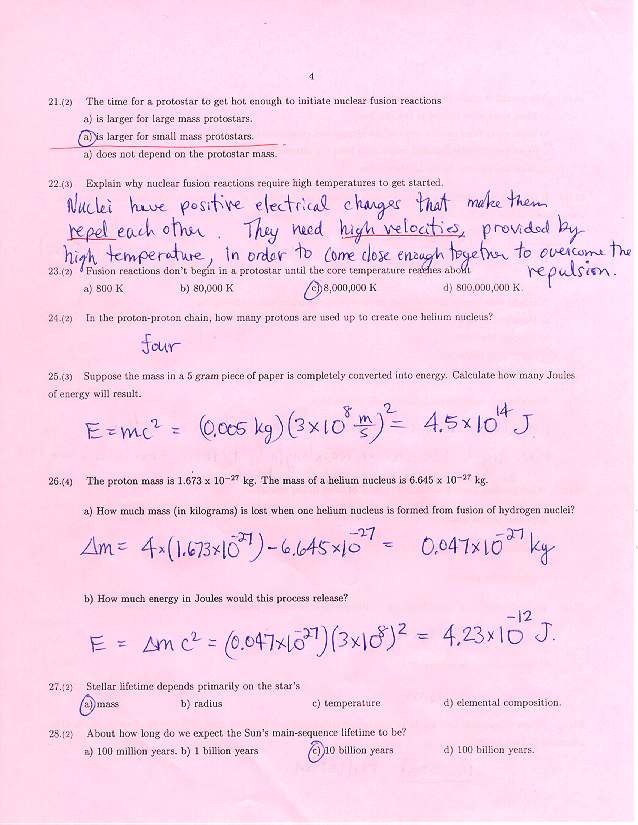 4
21.(2) The time for a protostar to get hot enough to initiate nuclear fusion reactions
a) is larger for large mass protostars.
a) is larger for small mass protostars.
a) does not depend on the protostar mass.
22.(3) Explain why nuclear fusion reactions require high temperatures to get started.
Nuclei have positive electrical charges that make them
repel each other. They need high velocities, provided by
high temperature, in order to come close enough together to overcome the
repulsion.
23.(2) Fusion reactions don't begin in a protostar until the core temperature reaches about
a) 800 K b) 80,000 K c) 8,000,000 K d) 800,000,000 K.
24.(2) In the proton-proton chain, how many protons are used up to create one helium nucleus?
four
25.(3) Suppose the mass in a 5 gram piece of paper is completely converted into energy. Calculate how many Joules
of energy will result.
E = mc² = (0.005 kg)(3×10⁸ m/s)² = 4.5×10¹⁴ J
26.(4) The proton mass is 1.673 x 10⁻²⁷ kg. The mass of a helium nucleus is 6.645 x 10⁻²⁷ kg.
a) How much mass (in kilograms) is lost when one helium nucleus is formed from fusion of hydrogen nuclei?
Δm = 4×(1.673×10⁻²⁷) − 6.645×10⁻²⁷ = 0.047×10⁻²⁷ kg
b) How much energy in Joules would this process release?
E = Δm c² = (0.047×10⁻²⁷)(3×10⁸)² = 4.23×10⁻¹² J.
27.(2) Stellar lifetime depends primarily on the star's
a) mass b) radius c) temperature d) elemental composition.
28.(2) About how long do we expect the Sun's main-sequence lifetime to be?
a) 100 million years. b) 1 billion years c) 10 billion years d) 100 billion years.